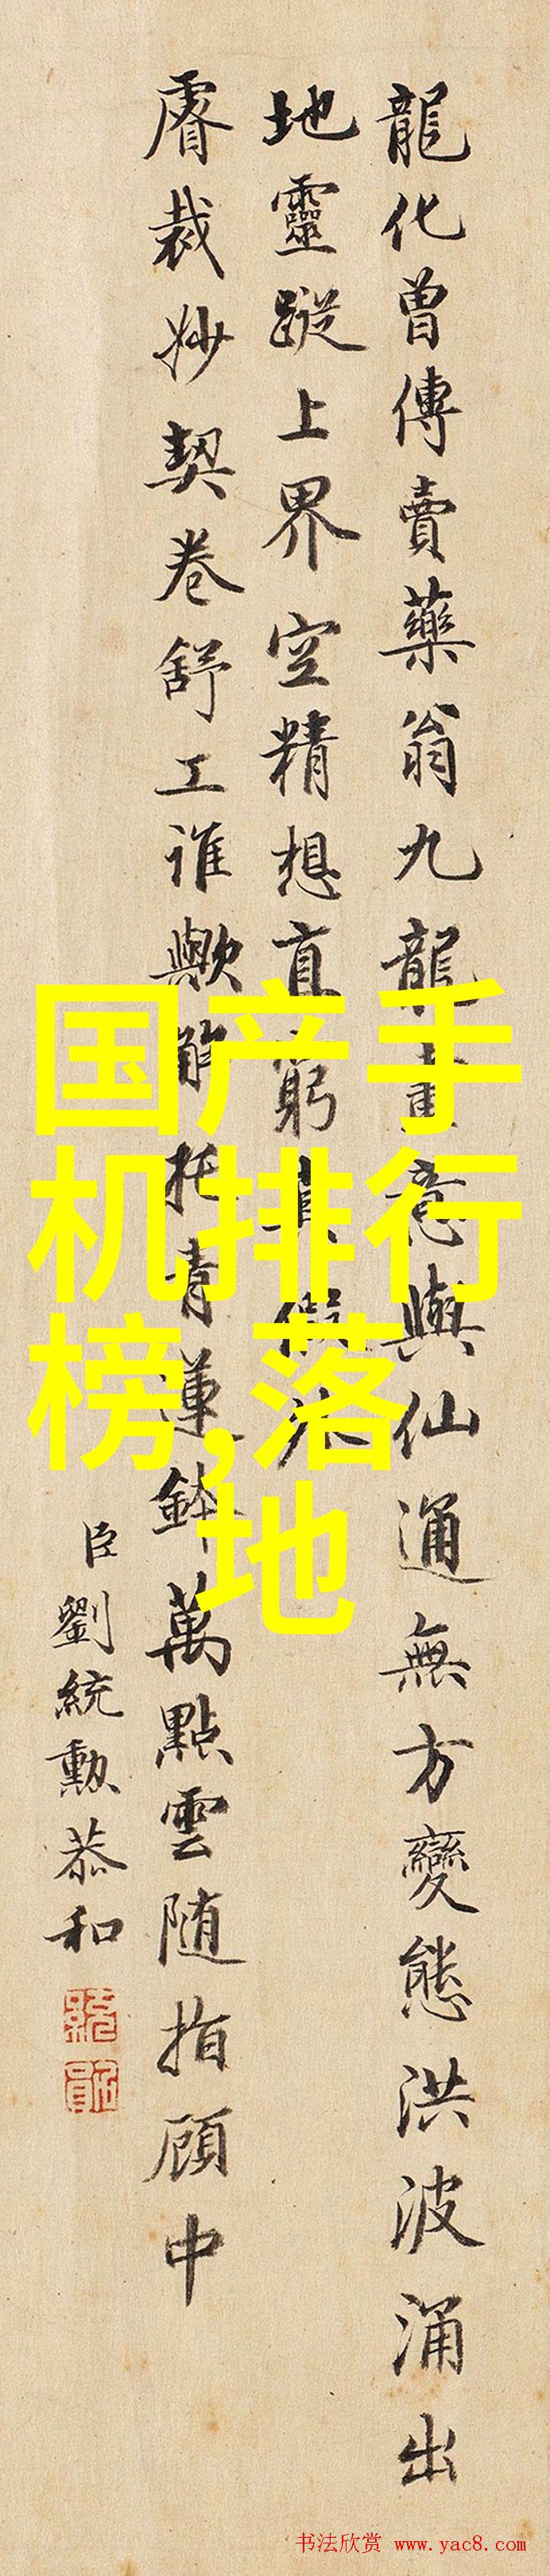 龍化曾傳賣藥翁九龍畫意與仙通無方變態洪波涌出
地靈蹤上界空精想直窮真假外
膚裁妙契卷舒工誰歟能托青蓮鉢萬點雲随指顧中
臣劉統勳恭和
国产手
机排行
榜,落
地
书法欣赏 www.yac8.com